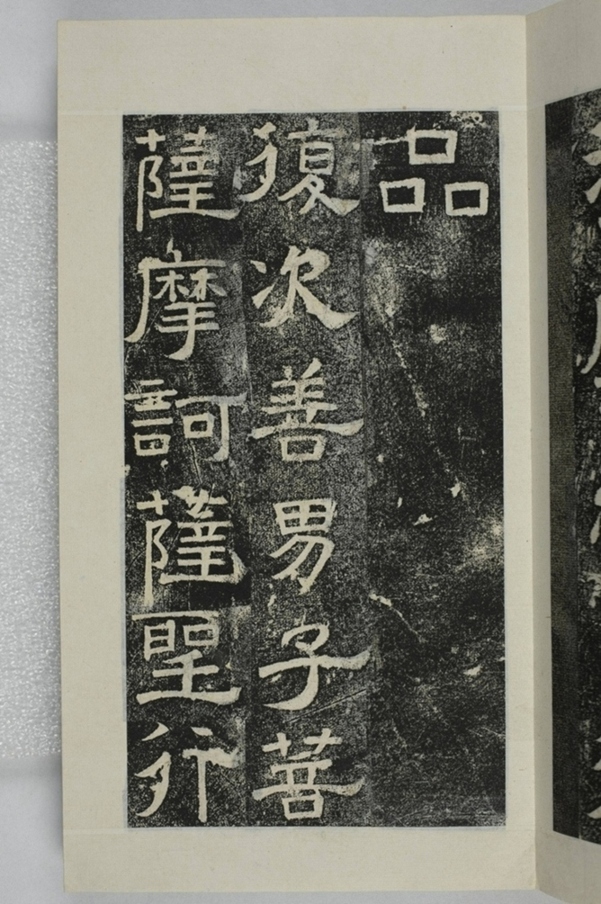 品
復次善男子菩
薩摩訶薩聖行